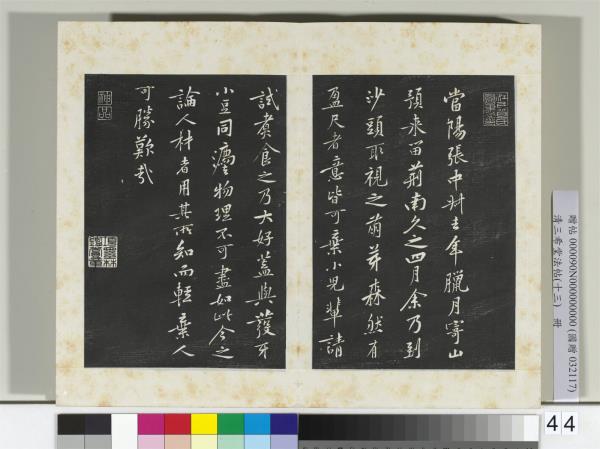 當陽張中叔去年臘月寄山
預來留荊南久之四月余乃到
沙頭取視之萌芽森然有
盈尺者意皆可棄小兒輩請
試煮食之乃大好蓋與發牙
小豆同灋物理不可盡如此今之
論人材者用其所知而輕棄人
可勝歎哉
神品
贈帖 000090N000000000 (國贈 032117)
清三希堂法帖(十三) 冊
44